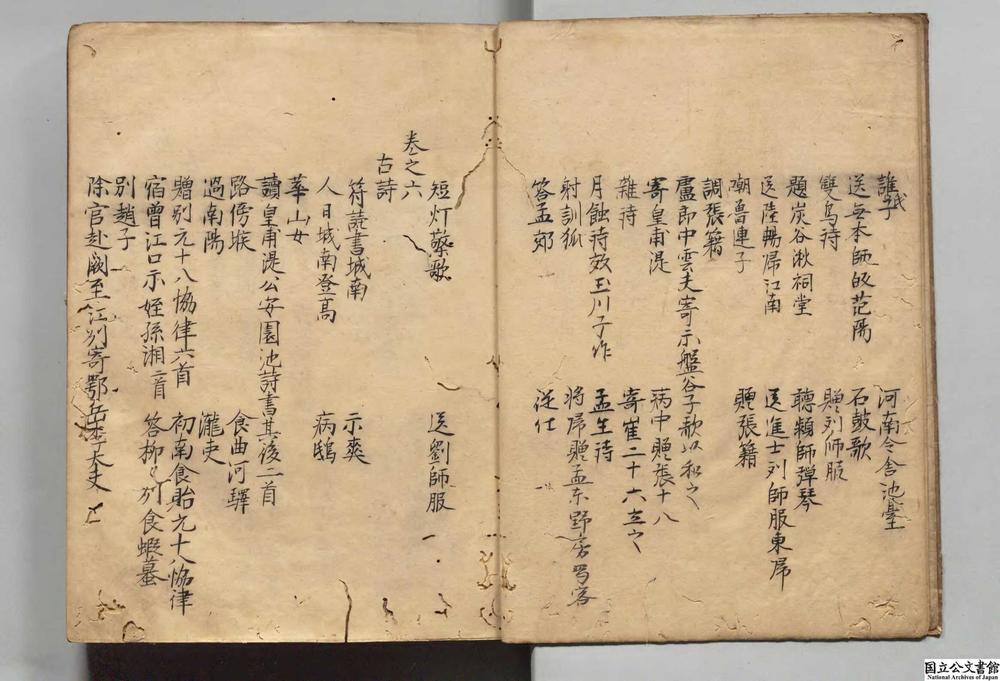 誰氏子 河南令舍池臺
送無本師皈范陽 石鼓歌
雙鳥詩 贈刘師服
題炭谷湫祠堂 聴頴師彈琴
送陸暢帰江南 送進士刘師服東帰
嘲魯連子 贈張籍
調張籍
盧郎中雲夫寄示盤谷子歌以和之
寄皇甫湜 病中贈張十八
雜詩 寄崔二十六立之
月蝕詩效玉川子作 孟生詩
射訓狐 将帰贈孟东野房蜀客
答孟郊 従仕
短灯檠歌 送劉師服
卷之六
古詩
符読書城南 示爽
人日城南登高 病鴟
華山女
讀皇甫湜公安園池詩書其後二首
路傍堠 食曲河驛
過南陽 瀧吏
贈別元十八恊律六首 初南食貽元十八恊律
宿曽江口示姪孫湘二首 答柳柳州食蝦蟇
別趙子
除官赴闕至江州寄鄂岳李大夫
国立公文書館
National Archives of Japan